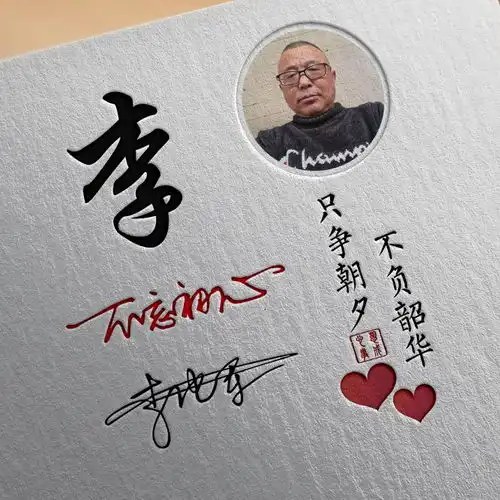 李
不忘初心
只争朝夕
不负韶华
Champ